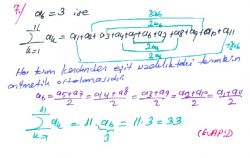 7/ a₆ = 3 ise
2a₆
2a₆
11 ∑ k=1 aₖ = a₁+a₂+a₃+a₄+a₅+a₆+a₇+a₈+a₉+a₁₀+a₁₁
2a₆
Her terim kendinden eşit uzaklıktaki terimlerin
aritmetik ortalamasıdır.
a₆ = a₅+a₇/2 = a₄+a₈/2 = a₃+a₉/2 = a₂+a₁₀/2 = a₁+a₁₁/2
11 ∑ aₖ = 11·a₆ = 11·3 = 33
3